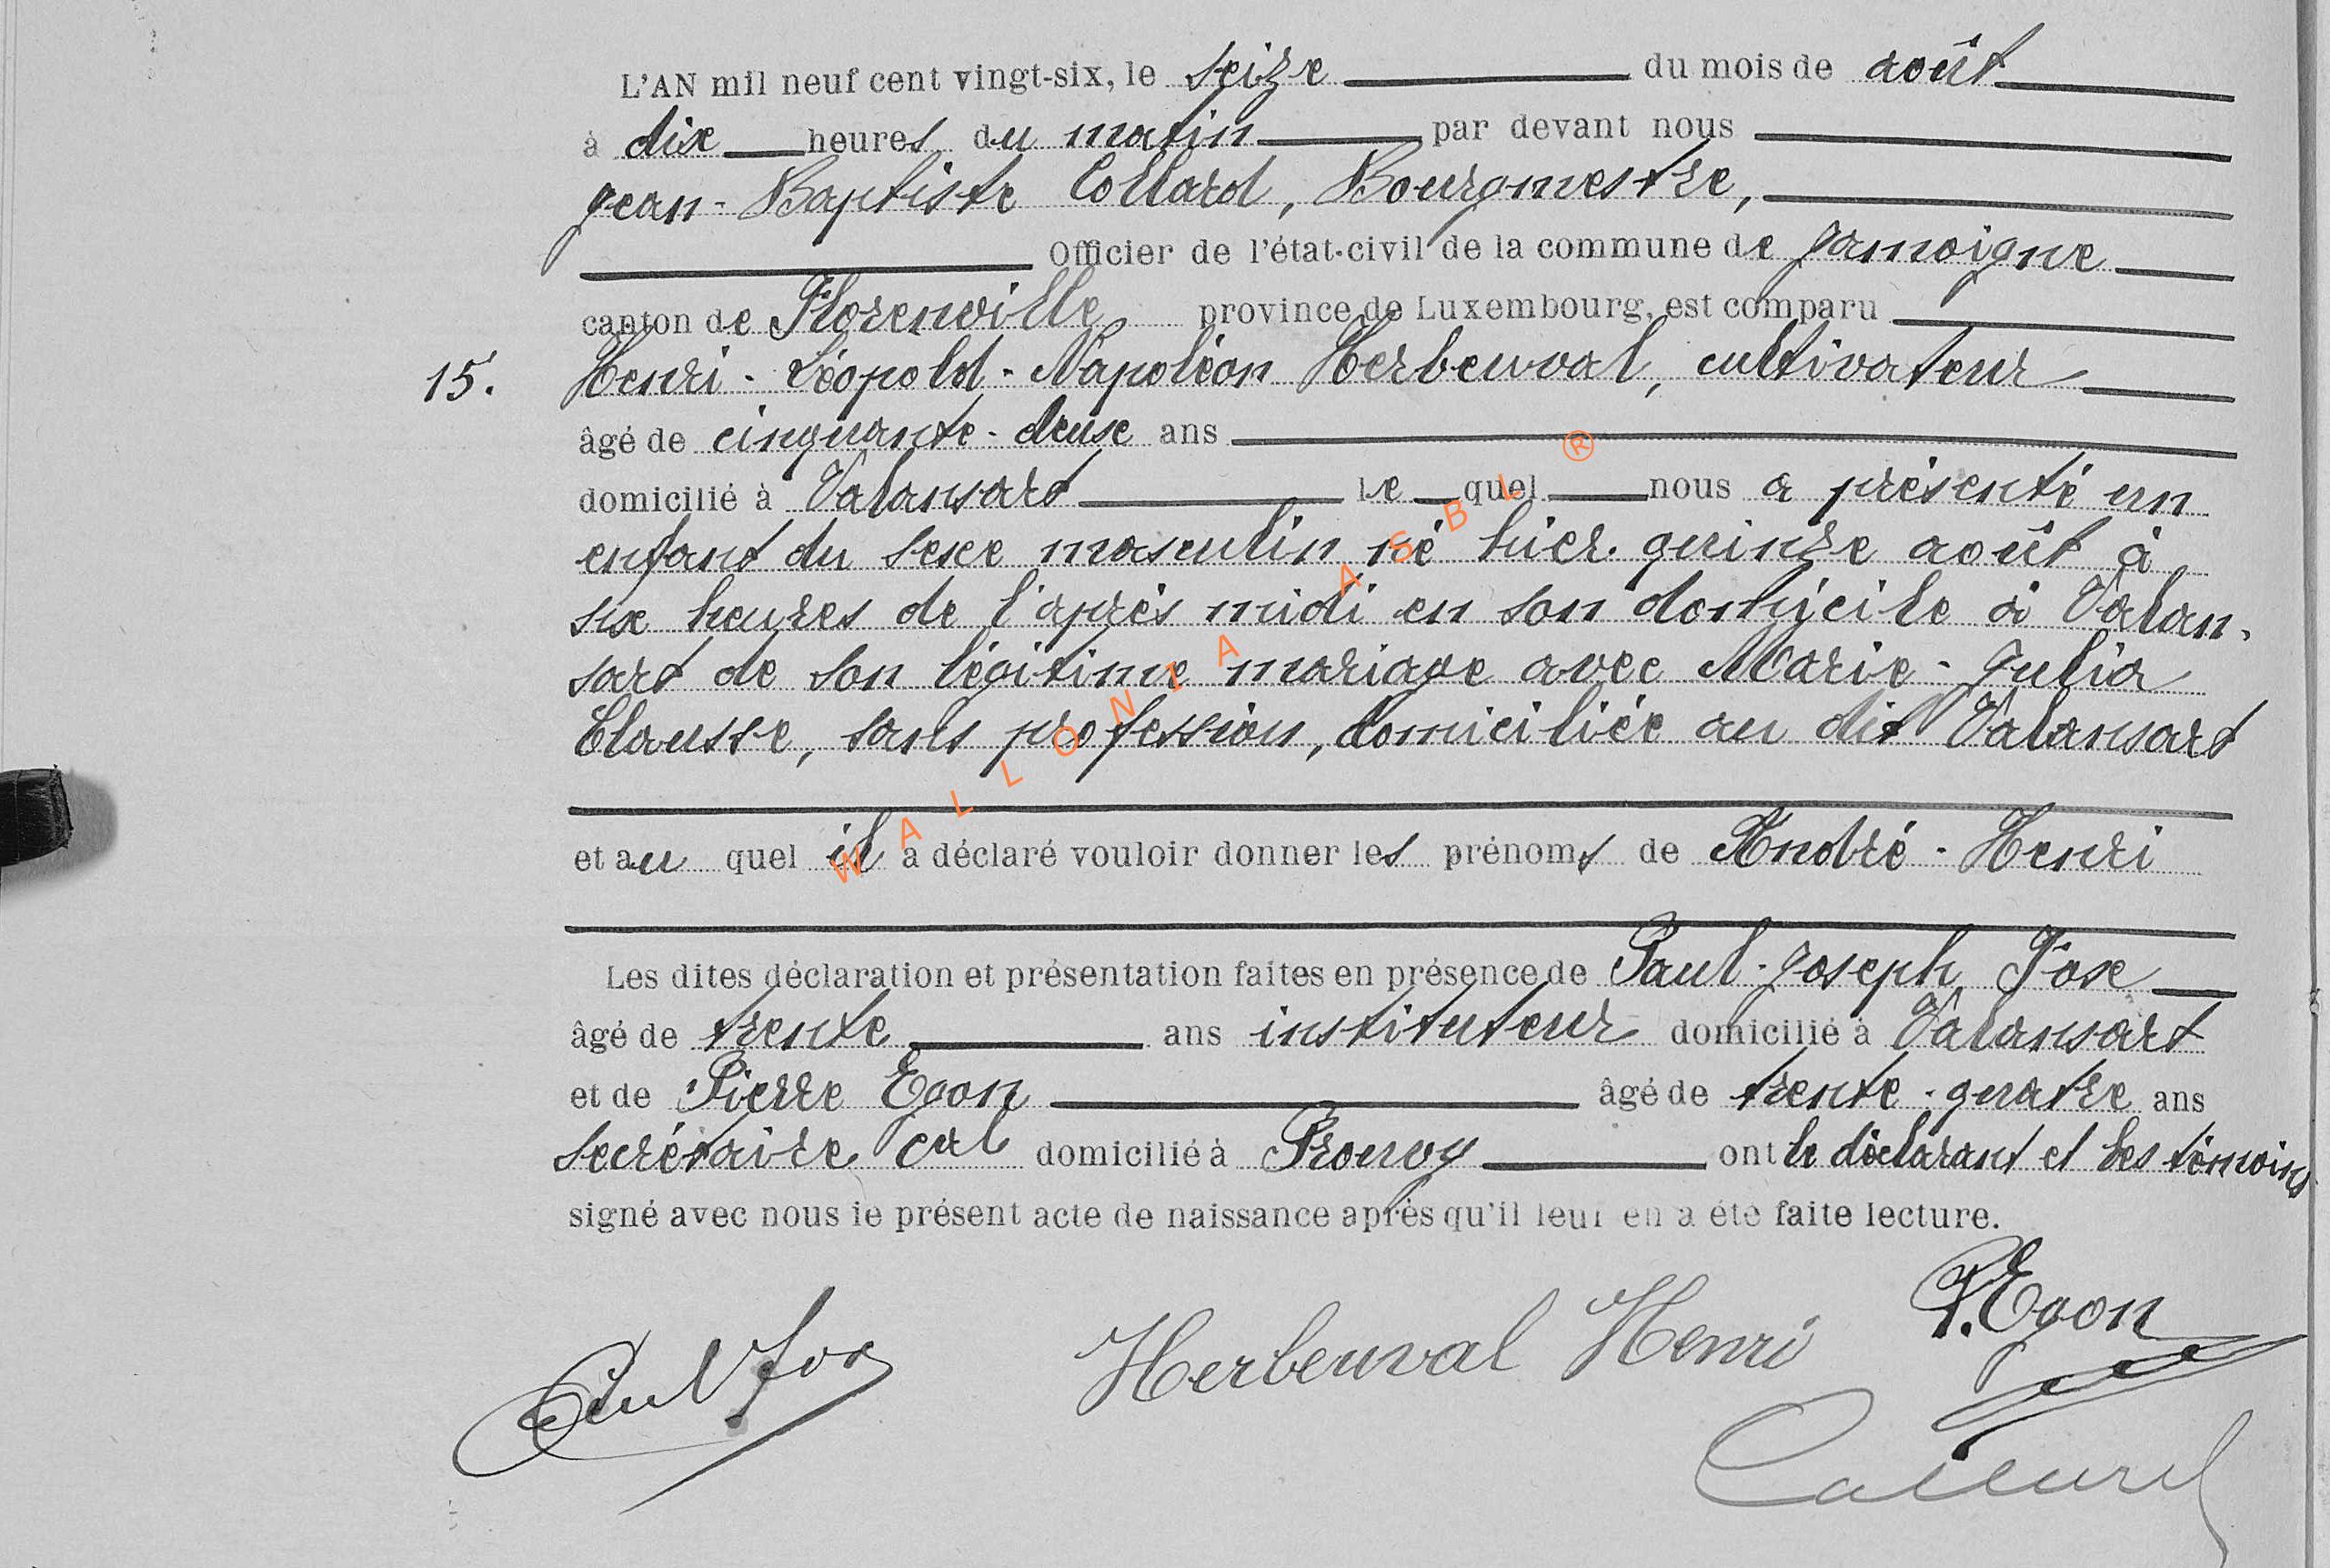 L'AN mil neuf cent vingt-six, le seize du mois de août
à dix heures du matin par devant nous
Jean-Baptiste Collard, Bourgmestre,
Officier de l'état-civil de la commune de Jamoigne
canton de Florenville province de Luxembourg, est comparu
15. Henri-Léopold-Napoléon Herbeuval, cultivateur
âgé de cinquante-deux ans
domicilié à Valansart le quel nous a présenté un
enfant du sexe masculin né hier quinze août à
six heures de l'après midi en son domicile à Valan-
sart de son légitime mariage avec Marie-Julia
Clausse, sans profession, domiciliée au dit Valansart
et au quel il a déclaré vouloir donner les prénoms de André-Henri
Les dites déclaration et présentation faites en présence de Paul-Joseph Fox
âgé de trente ans instituteur domicilié à Valansart
et de Pierre Egon âgé de trente-quatre ans
secrétaire cal domicilié à Prouvy ont le déclarant et les témoins
signé avec nous le présent acte de naissance après qu'il leur en a été faite lecture.
P. Egon
Paul Fox Herbeuval Henri
WALLONIA ASBL ®